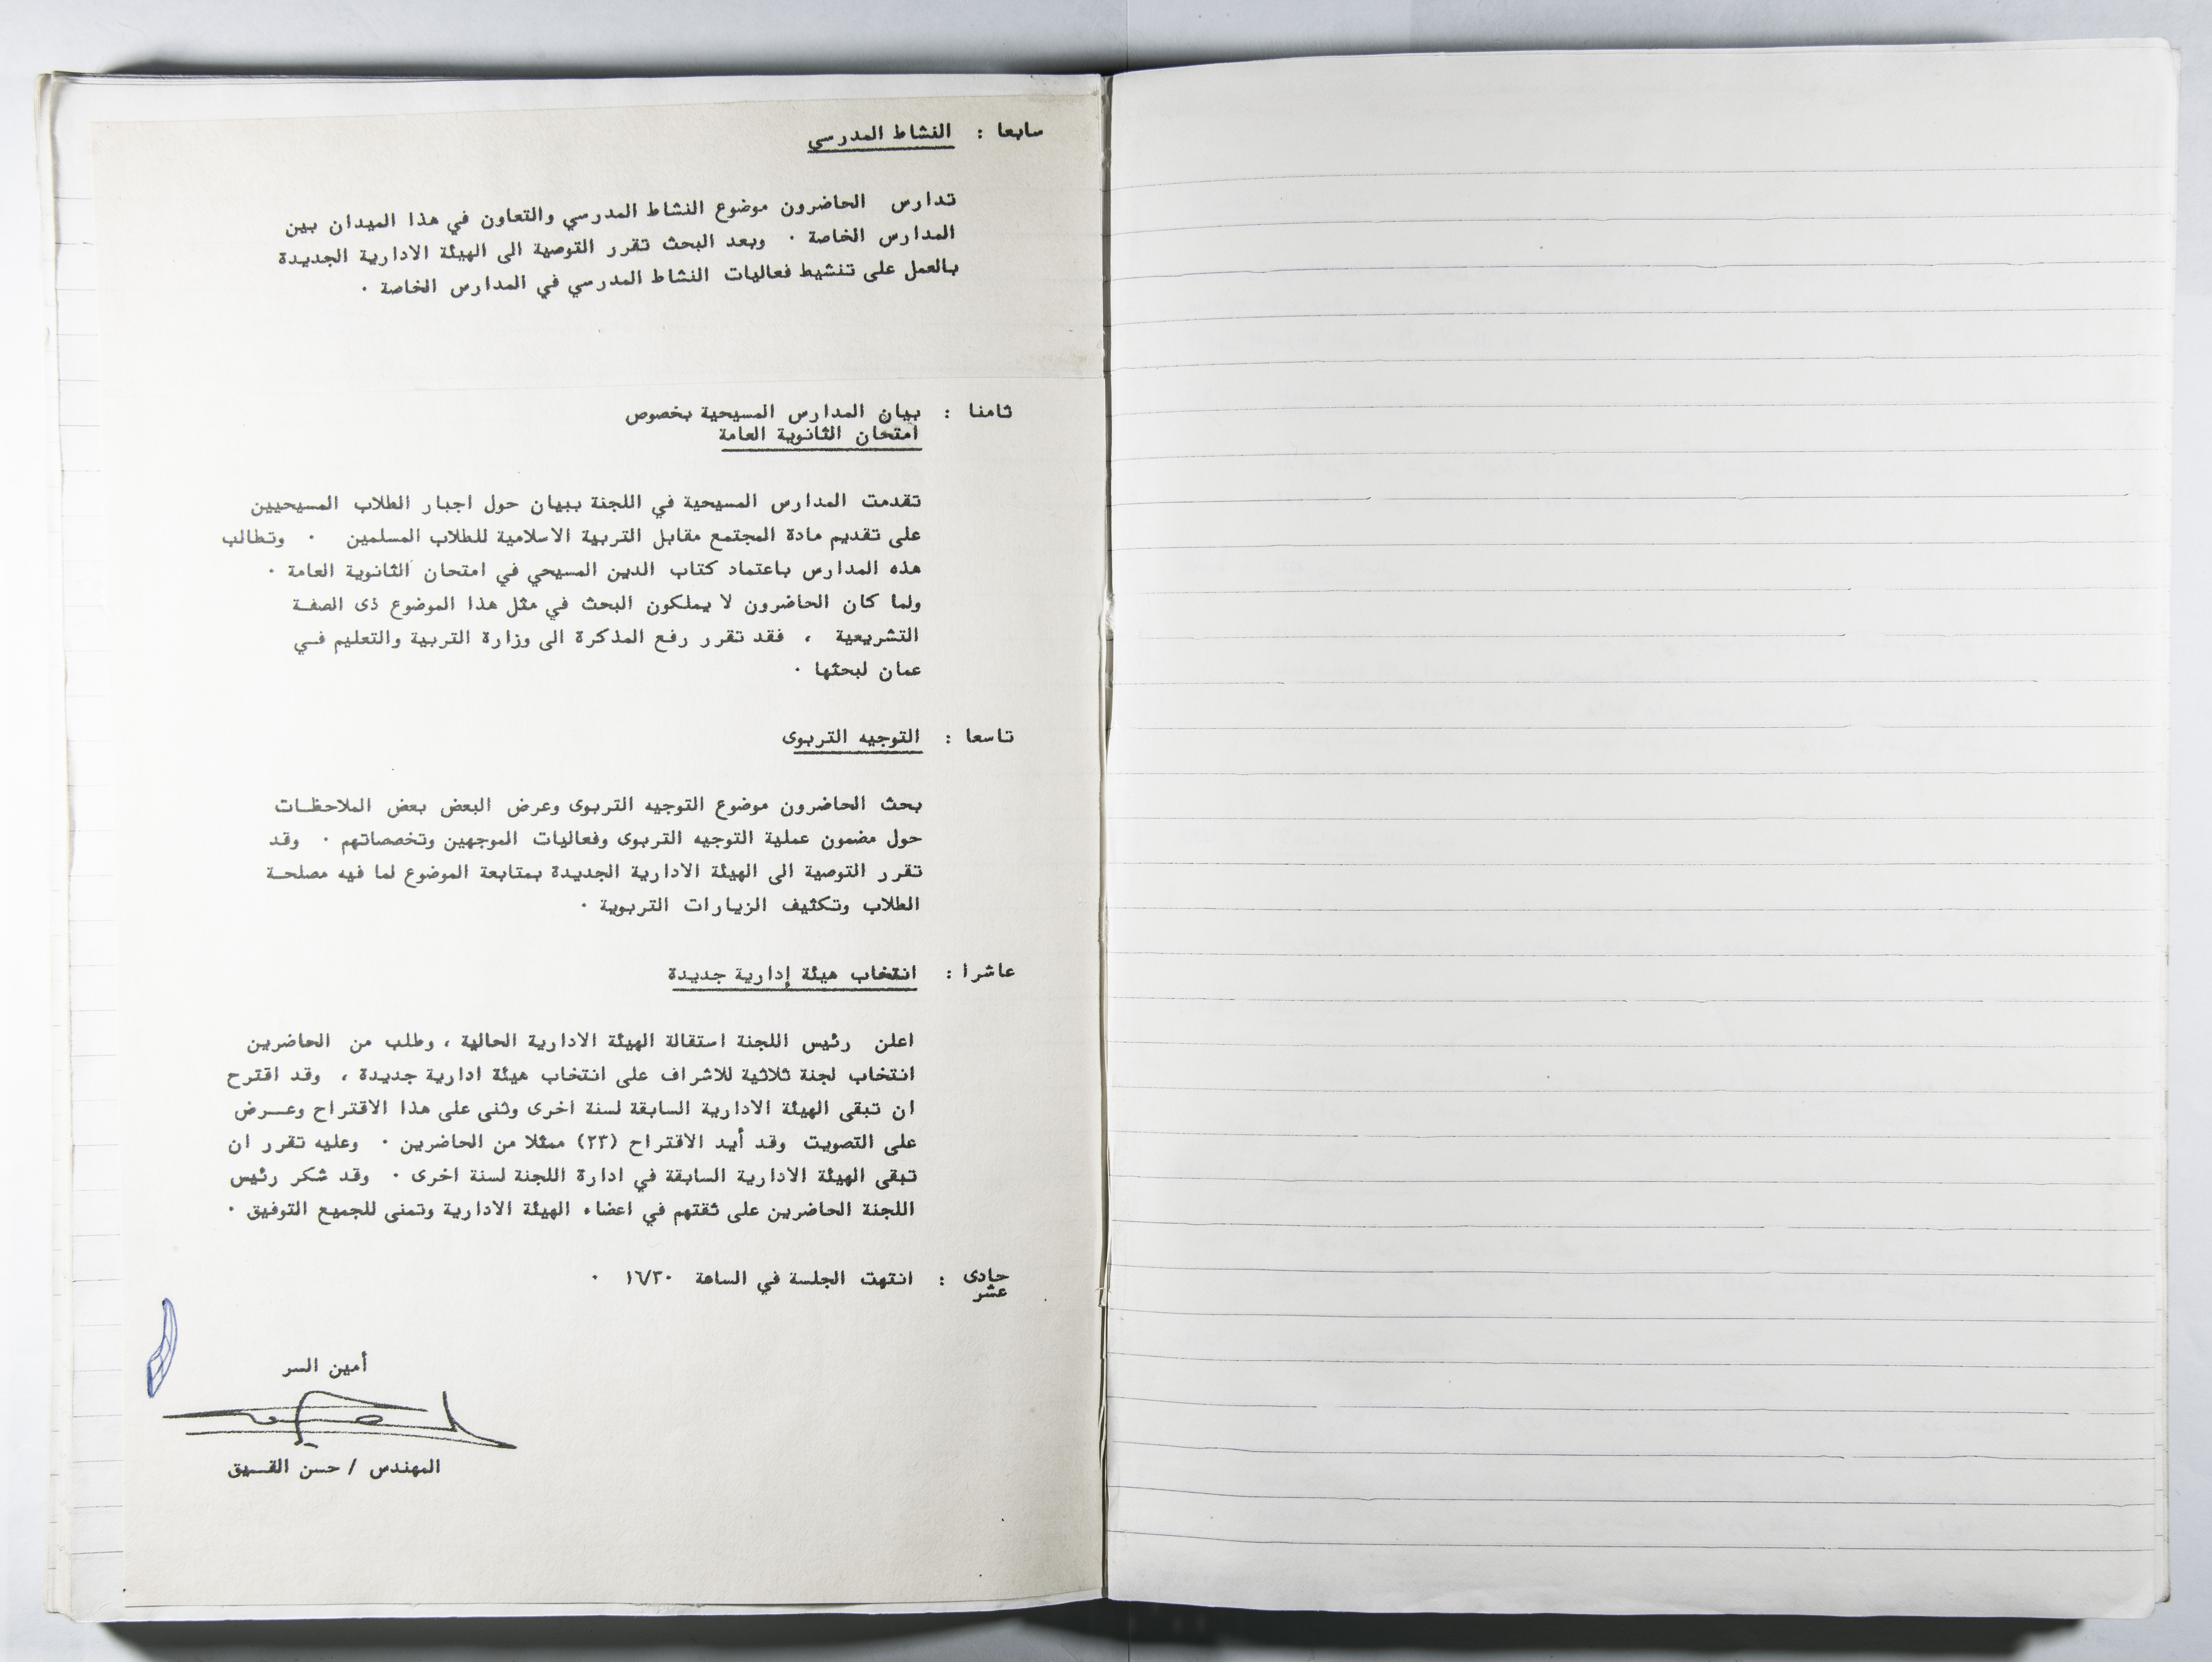 سابعا : النشاط المدرسي
تدارس الحاضرون موضوع النشاط المدرسي والتعاون في هذا الميدان بين
المدارس الخاصة ٠ وبعد البحث تقرر التوصية الى الهيئة الادارية الجديدة
بالعمل على تنشيط فعاليات النشاط المدرسي في المدارس الخاصة ٠
ثامنا : بيان المدارس المسيحية بخصوص
امتحان الثانوية العامة
تقدمت المدارس المسيحية في اللجنة ببيان حول اجبار الطلاب المسيحيين
على تقديم مادة المجتمع مقابل التربية الاسلامية للطلاب المسلمين ٠ وتطالب
هذه المدارس باعتماد كتاب الدين المسيحي في امتحان الثانوية العامة ٠
ولما كان الحاضرون لا يملكون البحث في مثل هذا الموضوع ذى الصفـة
التشريعية ، فقد تقرر رفع المذكرة الى وزارة التربية والتعليم فـي
عمان لبحثها ٠
تاسعا : التوجيه التربوى
بحث الحاضرون موضوع التوجيه التربوى وعرض البعض بعض الملاحظـات
حول مضمون عملية التوجيه التربوى وفعاليات الموجهين وتخصصاتهم ٠ وقد
تقرر التوصية الى الهيئة الادارية الجديدة بمتابعة الموضوع لما فيه مصلحـة
الطلاب وتكثيف الزيارات التربوية ٠
عاشرا : انتخاب هيئة إدارية جديدة
اعلن رئيس اللجنة استقالة الهيئة الادارية الحالية ، وطلب من الحاضرين
انتخاب لجنة ثلاثية للاشراف على انتخاب هيئة ادارية جديدة ، وقد اقترح
ان تبقى الهيئة الادارية السابقة لسنة اخرى وثنى على هذا الاقتراح وعـرض
على التصويت وقد أيد الاقتراح (٢٣) ممثلا من الحاضرين ٠ وعليه تقرر ان
تبقى الهيئة الادارية السابقة في ادارة اللجنة لسنة اخرى ٠ وقد شكر رئيس
اللجنة الحاضرين على ثقتهم في اعضاء الهيئة الادارية وتمنى للجميع التوفيق ٠
حادى عشر : انتهت الجلسة في الساعة ١٦/٣٠ ٠
أمين السر
المهندس / حسن القـيق